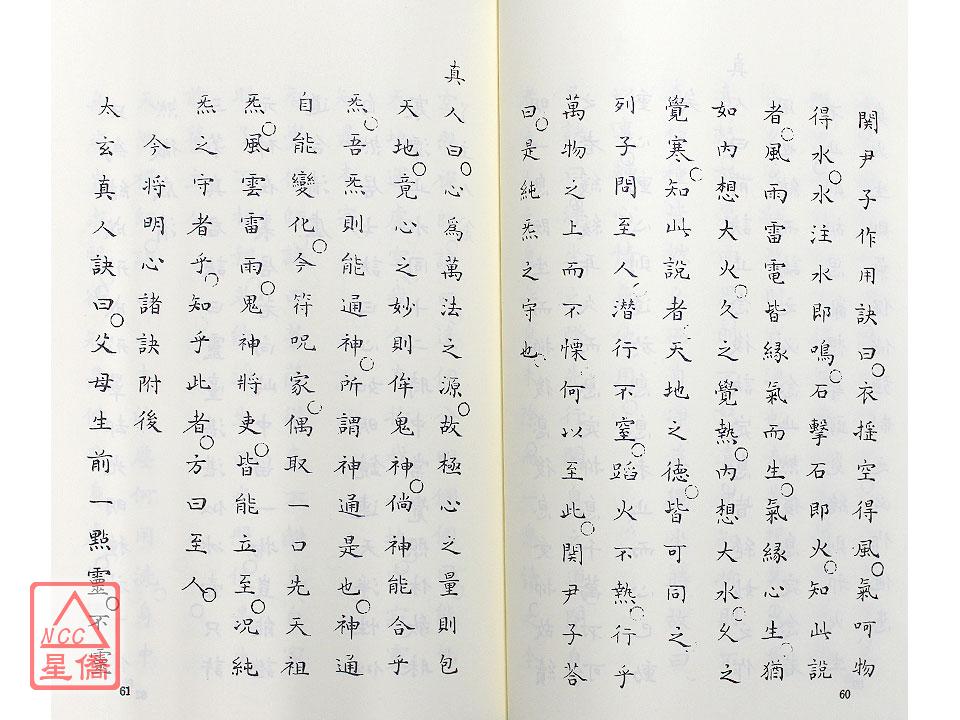 関尹子作用訣曰○衣揺空得風○氣呵物
得水○水注水即鳴○石擊石即火○知此説
者○風雨雷電皆緣氣而生○氣緣心生○猶
如内想大火○久之覺熱○内想大水○久之
覺寒○知此説者○天地之德○皆可同之○
列子問至人潜行不窒○蹈火不熱○行乎
萬物之上而不慄○何以至此○関尹子荅
曰○是純炁之守也○
60
真人曰○心為萬法之源○故極心之量則包
天地○竟心之妙則侔鬼神○倘神能合乎
炁○吾炁則能通神○所謂神通是也○神通
自能變化○今符呪家○偶取一口先天祖
炁○風雲雷雨○鬼神將吏○皆能立至○況純
炁之守者乎○知乎此者○方曰至人○
今将明心諸訣附後
太玄真人訣曰○父母生前一點靈○不靈
61
NCC
星僑